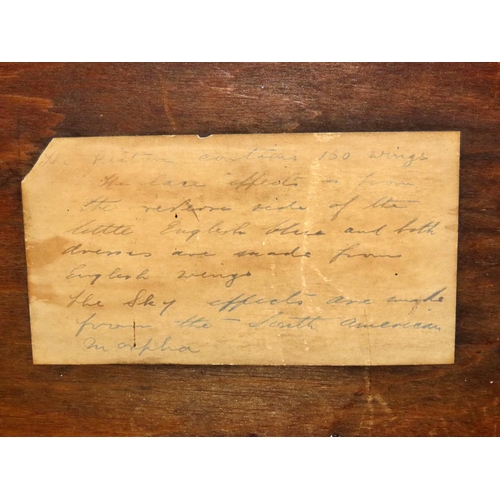 Picture contains 150 wings
The lace effects is from
the reverse side of the
little English blue and both
dresses are made from
English wings
The Sky effects are made
from the South American
Morpha